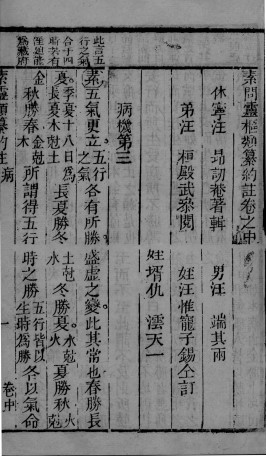 素問靈樞類纂約註卷之中
休寧汪　昂訒菴著輯　男汪　端其兩
弟汪　桓殿武參閱　姪汪惟寵子錫仝訂
姪壻仇　澐天一
病機第三
素五氣更立五行之氣各有所勝盛虛之變此其常也春勝長
夏木尅土長夏勝冬土尅水冬勝夏水尅火夏勝秋火尅
金秋勝春金尅木所謂得五行時之勝五行皆以生時為勝冬以氣命
此言五
行之氣
合于四
時
素靈類纂約註　病
一　卷中